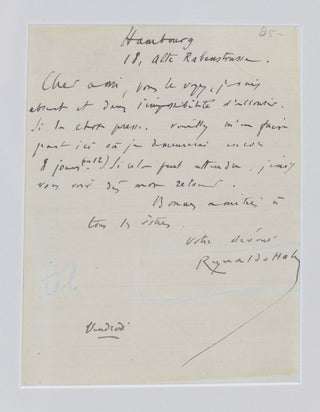 Hambourg
95-
18, Alte Rabenstrasse.
Cher ami, vous le voyez, je suis
absent et dans l'impossibilité d'accourir.
Si la chose presse, veuillez m'en faire
part ici où je demeurerai encore
8 jours. (ou 12) Si cela peut attendre, j'irai
vous voir dès mon retour.
Bonnes amitiés à
tous les vôtres.
Votre dévoué
Reynaldo Hahn
Vendredi